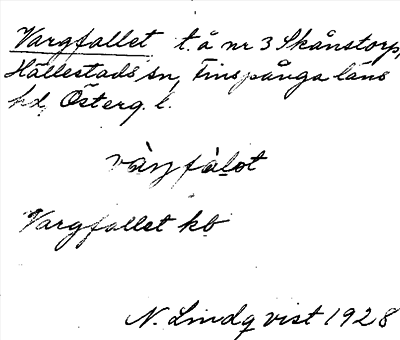 Vargfallet t. å nr 3 Skånstorp,
Hällestads sn, Finspånga läns
hd, Österg. l.
Vargfallet kb
N. Lindqvist 1928